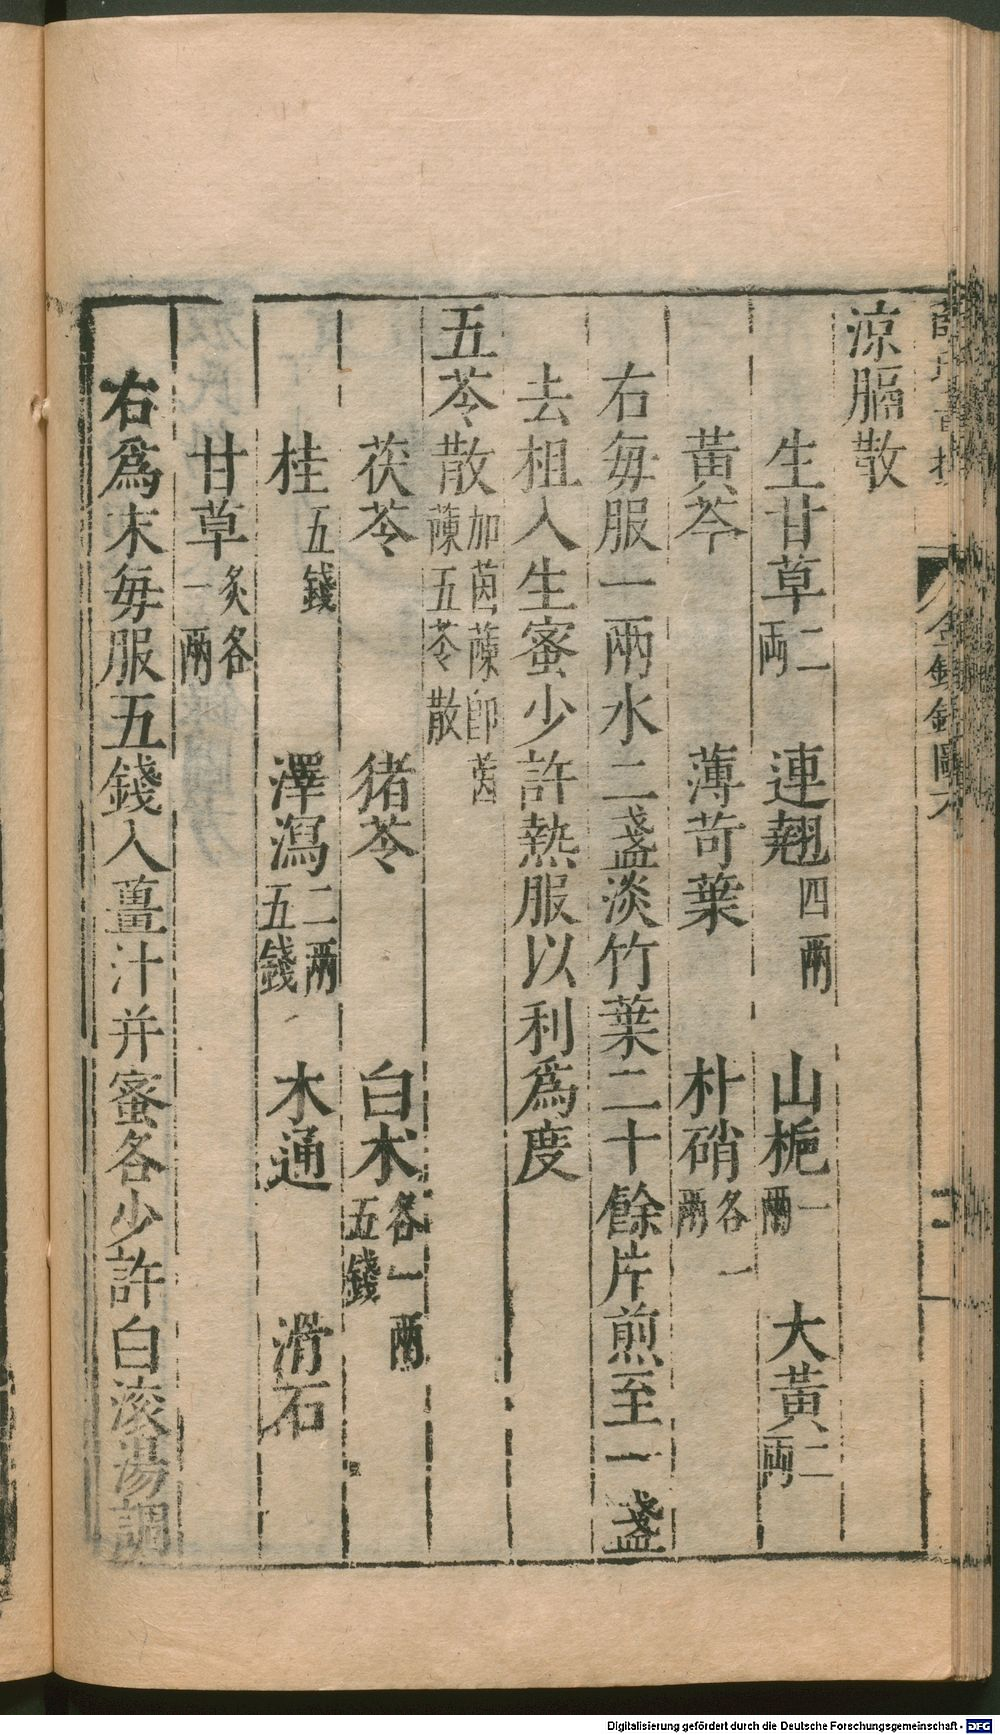 涼膈散
生甘草二兩 連翹四兩 山梔一兩 大黃二兩
黃芩 薄苛葉 朴硝各一兩
右每服一兩水二盞淡竹葉二十餘片煎至一盞
去柤入生蜜少許熱服以利爲度
五苓散加茵蔯卽茵蔯五苓散
茯苓 猪苓 白朮各一兩五錢
桂五錢 澤瀉二兩五錢 木通 滑石
甘草炙各一兩
右爲末每服五錢入薑汁并蜜各少許白滾湯調
Digitalisierung gefördert durch die Deutsche Forschungsgemeinschaft - DFG